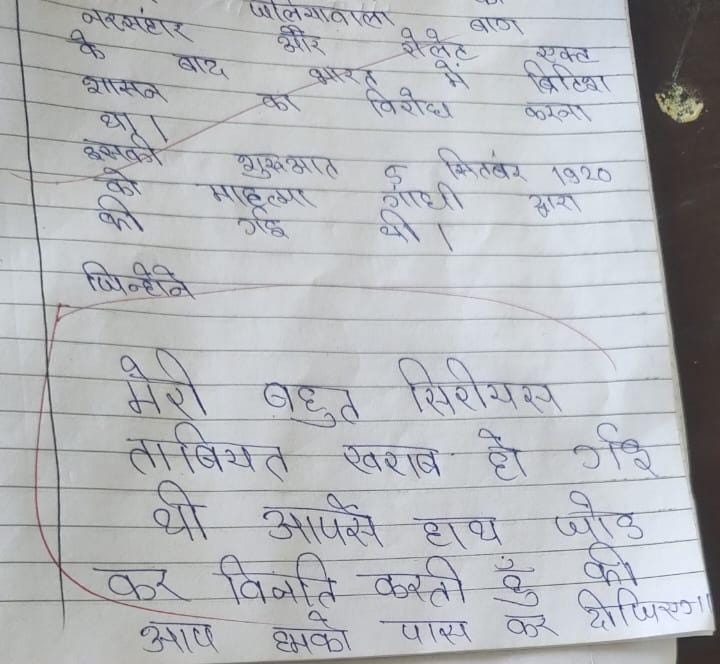 नरसंहार जलियावाला बाग
के बाद और रोलेट एक्ट
शासन भारत में ब्रिटिश
था। का विरोध करना
इसकी शुरुआत 5 सितंबर 1920
को माहत्मा गांधी द्वारा
की गई थी।
जिन्होने
मेरी बहुत सिरीयस
ताबियत खराब हो गई
थी आपसे हाथ जोड
कर विनति करती हुँ की
आप हमको पास कर दीजिएगा